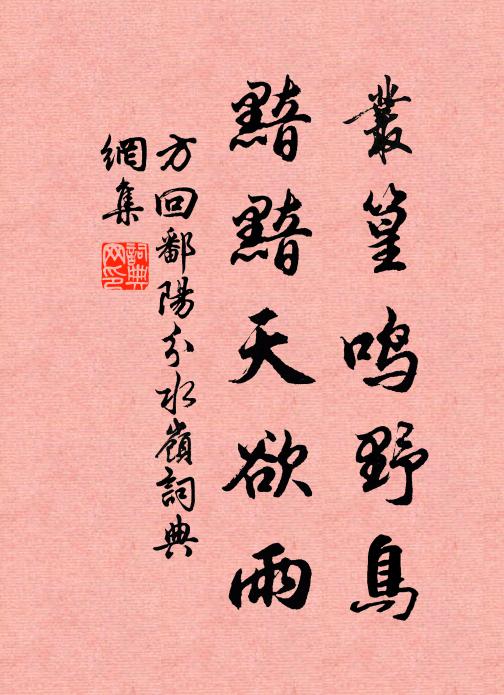 叢篁鳴野鳥
黯黯天欲雨
方回鄱陽分水嶺詞典
網集
詞典网印